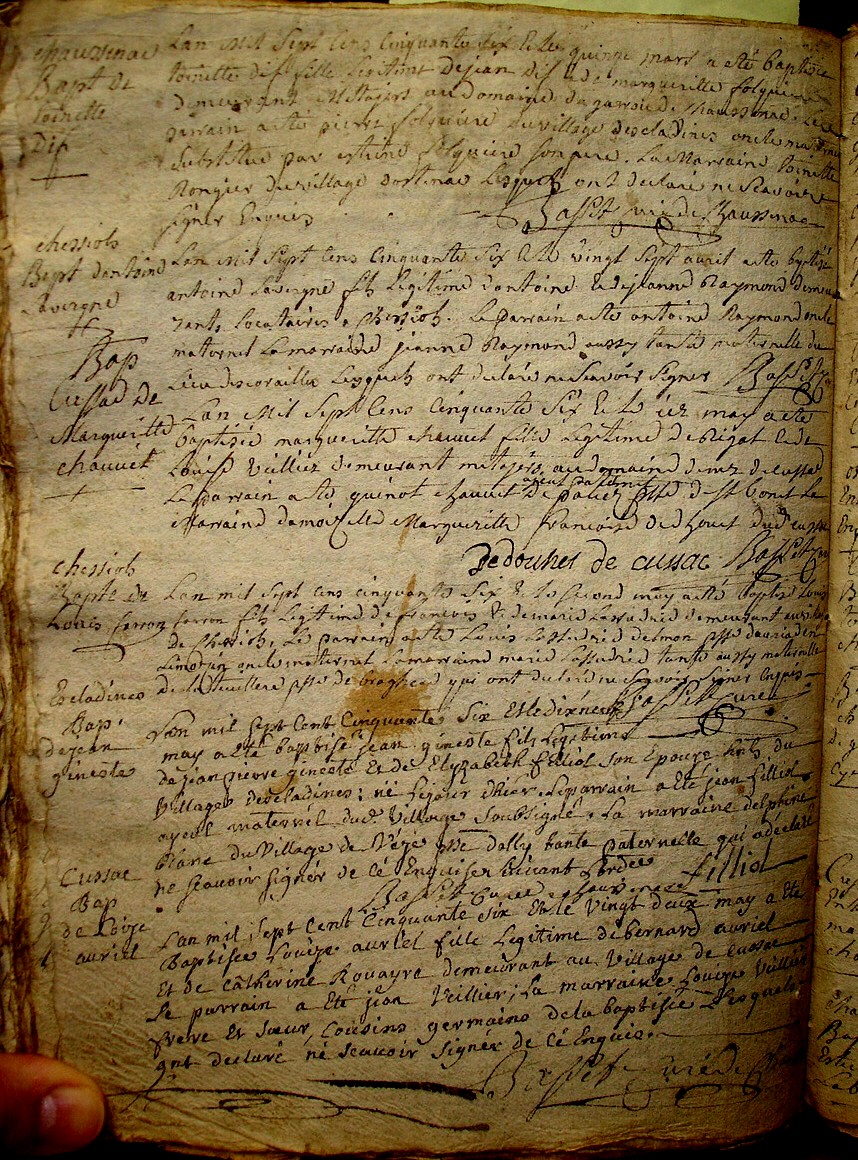 chaussenac
Bapt de
toinette
Dif
Lan Mil Sept Cens Cinquante Six Et le quinze mars a eté baptisée
toinette Dif fille Legitime de jean Dif et de margueritte folquiere
demeurant Metayers au domaine du parroisse de chaussenac. Le
parrain a ete pierre folquiere du village descladines oncle maternel
Substitué par estiene folquiere son pere. La Marraine toinette
Rongier du village dostenac Lesquels ont déclaré ne Scavoir
signer Enquis
Basset curé de chaussenac
chessiols
Bapt dantoine
Lavergne
Lan Mil Sept Cens Cinquante Six Et le vingt Sept avril a ete baptisé
antoine Lavergne fils Legitime dantoine et de jeanne Raymond demeu
rants Locataires a Chessiols. Le parrain a ete antoine Raymond oncle
maternel La marraine jeanne Raymond aussy tante maternelle du
Lieu descorailles Lesquels ont declaré ne Scavoir signer Basset
Bap
Cussac de
Margueritte
chauvet
Lan Mil Sept Cens Cinquante Six Et le may a ete
baptisée margueritte chauvet fille Legitime de Rigal et de
Louise veillier demeurant metayers au domaine de cussac
ayeul paternel
Le parrain a ete guinot chauvet de psse de st Bonet La
Marraine damoiselle Margueritte francoise de du cussac
de douhet de cussac Basset
chessiols
Bapte de
Louis ferron
Lan mil sept cens cinquante Six Et le second may a eté baptisé Louis
ferron fils Legitime de francois et de marie demeurant au village
de Chessiols, Le parrain a ete Louis psse
Limosin oncle maternel La marraine marie tante aussy maternelle
de psse de qui ont declaré ne Scavoir signer Enquis
Basset curé
Escladines
Bap.
de jean
gineste
Lan mil sept Cent Cinquante six et le dixneuf
may a eté baptisé jean gineste fils Legitime
de jean pierre gineste Et de Elizabeth filliol son Epouze du
village descladines; né Lejour dhier. Le parrain a Eté jean filliol
ayeul maternel dud village soubsigné. La marraine delphine
Blanc du village de Vèze psse dally tante paternelle qui a déclaré
ne scavoir signér de Cé Enquise suivant Lordce
filliol
Basset Curé chaussenac
Cussac
Bap
de Loize
auriel
Lan mil sept Cent Cinquante six Et le vingt deux may a Eté
Baptisée Louise auriel fille Legitime de bernard auriel
Et de Catherine Rouayre demeurant au village de cussac
Le parrain a Eté jean veillier; La marraine Louise veillier
frere Et sœur, Cousins germains de la baptisée Lesquels
ont declaré né scavoir signér de Cé Enquis.
Basset Curé de